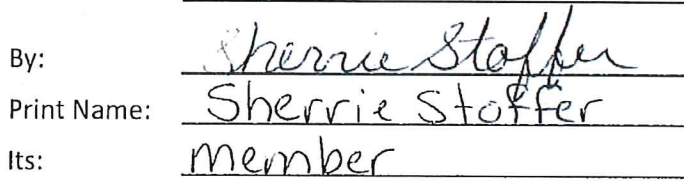 By: Sherrie Stoffer
Print Name: Sherrie Stoffer
Its: member